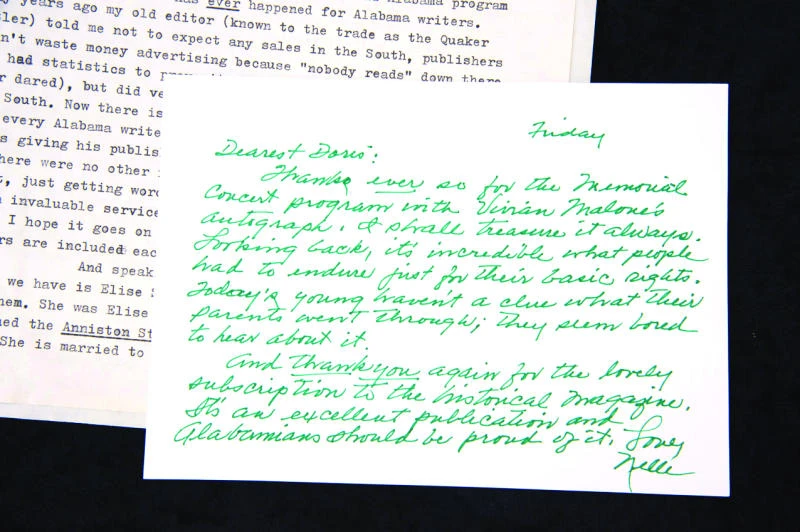 ever happened for Alabama writers.
years ago my old editor (known to the trade as the Quaker
told me not to expect any sales in the South, publishers
waste money advertising because "nobody reads" down there
had statistics to
dared), but did
South. Now there is
every Alabama
s giving his
there were no other
, just getting
invaluable service
I hope it goes on
are included
And speak
we have is Elise
hem. She was Elise
the Anniston
She is married to
Friday
Dearest Doris:
Thanks ever so for the Memorial
Concert program with Vivian Malone's
autograph. I shall treasure it always.
Looking back, it's incredible what people
had to endure just for their basic rights.
Today's young haven't a clue what their
parents went through; they seem bored
to hear about it.
And thank you again for the lovely
subscription to the historical magazine.
It's an excellent publication and
Alabamians should be proud of it. Love,
Nelle